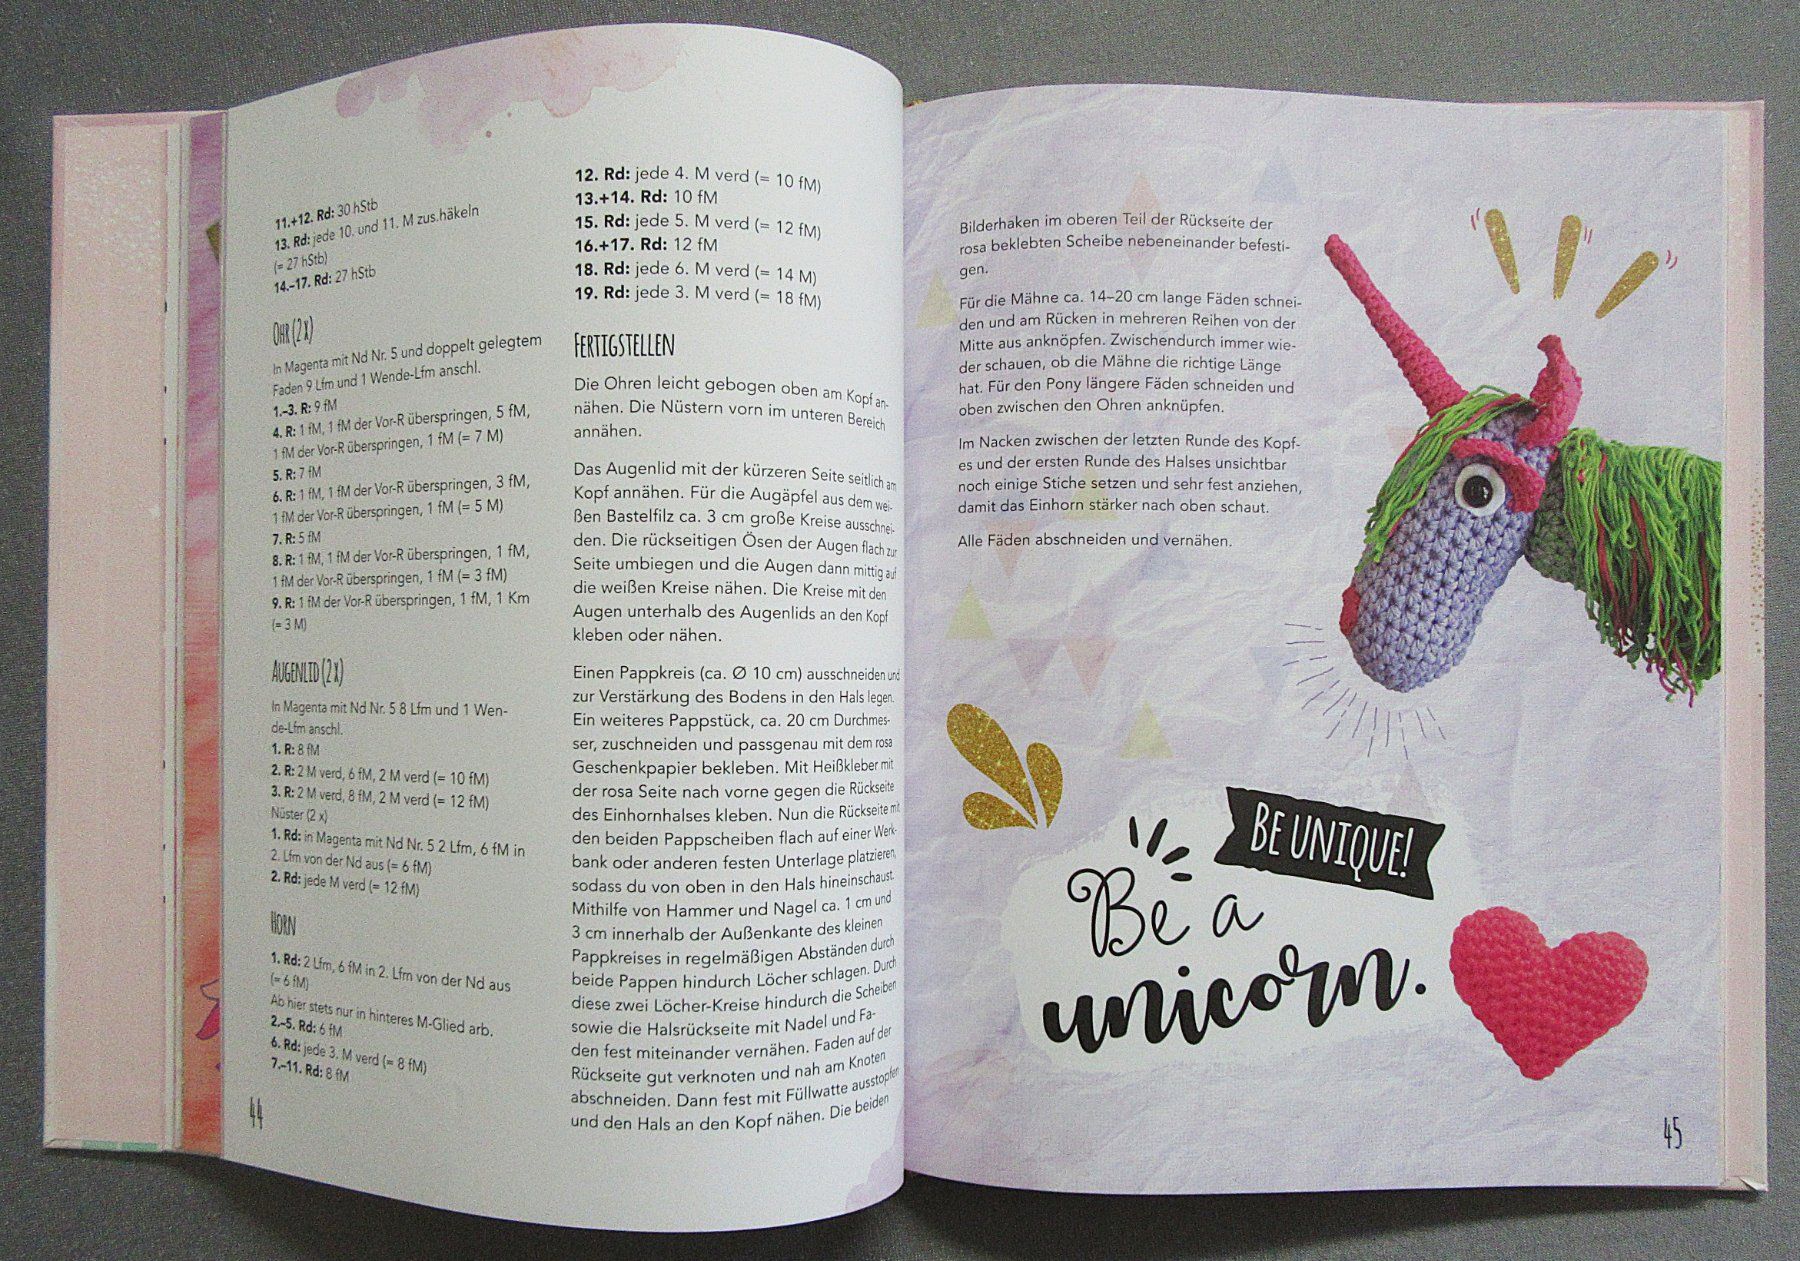 11.+12. Rd: 30 hStb
13. Rd: jede 10. und 11. M zus.häkeln
(= 27 hStb)
14.–17. Rd: 27 hStb
OHR (2 X)
In Magenta mit Nd Nr. 5 und doppelt gelegtem
Faden 9 Lfm und 1 Wende-Lfm anschl.
1.–3. R: 9 fM
4. R: 1 fM, 1 fM der Vor-R überspringen, 5 fM,
1 fM der Vor-R überspringen, 1 fM (= 7 M)
5. R: 7 fM
6. R: 1 fM, 1 fM der Vor-R überspringen, 3 fM,
1 fM der Vor-R überspringen, 1 fM (= 5 M)
7. R: 5 fM
8. R: 1 fM, 1 fM der Vor-R überspringen, 1 fM,
1 fM der Vor-R überspringen, 1 fM (= 3 fM)
9. R: 1 fM der Vor-R überspringen, 1 fM, 1 Km
(= 3 M)
AUGENLID (2 X)
In Magenta mit Nd Nr. 5 8 Lfm und 1 Wen-
de-Lfm anschl.
1. R: 8 fM
2. R: 2 M verd, 6 fM, 2 M verd (= 10 fM)
3. R: 2 M verd, 8 fM, 2 M verd (= 12 fM)
Nüster (2 x)
1. Rd: in Magenta mit Nd Nr. 5 2 Lfm, 6 fM in
2. Lfm von der Nd aus (= 6 fM)
2. Rd: jede M verd (= 12 fM)
HORN
1. Rd: 2 Lfm, 6 fM in 2. Lfm von der Nd aus
(= 6 fM)
Ab hier stets nur in hinteres M-Glied arb.
2.–5. Rd: 6 fM
6. Rd: jede 3. M verd (= 8 fM)
7.–11. Rd: 8 fM
44
12. Rd: jede 4. M verd (= 10 fM)
13.+14. Rd: 10 fM
15. Rd: jede 5. M verd (= 12 fM)
16.+17. Rd: 12 fM
18. Rd: jede 6. M verd (= 14 M)
19. Rd: jede 3. M verd (= 18 fM)
FERTIGSTELLEN
Die Ohren leicht gebogen oben am Kopf an-
nähen. Die Nüstern vorn im unteren Bereich
annähen.
Das Augenlid mit der kürzeren Seite seitlich am
Kopf annähen. Für die Augäpfel aus dem wei-
ßen Bastelfilz ca. 3 cm große Kreise ausschnei-
den. Die rückseitigen Ösen der Augen flach zur
Seite umbiegen und die Augen dann mittig auf
die weißen Kreise nähen. Die Kreise mit den
Augen unterhalb des Augenlids an den Kopf
kleben oder nähen.
Einen Pappkreis (ca. Ø 10 cm) ausschneiden und
zur Verstärkung des Bodens in den Hals legen.
Ein weiteres Pappstück, ca. 20 cm Durchmes-
ser, zuschneiden und passgenau mit dem rosa
Geschenkpapier bekleben. Mit Heißkleber mit
der rosa Seite nach vorne gegen die Rückseite
des Einhornhalses kleben. Nun die Rückseite mit
den beiden Pappscheiben flach auf einer Werk-
bank oder anderen festen Unterlage platzieren,
sodass du von oben in den Hals hineinschaust.
Mithilfe von Hammer und Nagel ca. 1 cm und
3 cm innerhalb der Außenkante des kleinen
Pappkreises in regelmäßigen Abständen durch
beide Pappen hindurch Löcher schlagen. Durch
diese zwei Löcher-Kreise hindurch die Scheiben
sowie die Halsrückseite mit Nadel und Fa-
den fest miteinander vernähen. Faden auf der
Rückseite gut verknoten und nah am Knoten
abschneiden. Dann fest mit Füllwatte ausstopfen
und den Hals an den Kopf nähen. Die beiden
Bilderhaken im oberen Teil der Rückseite der
rosa beklebten Scheibe nebeneinander befesti-
gen.
Für die Mähne ca. 14–20 cm lange Fäden schnei-
den und am Rücken in mehreren Reihen von der
Mitte aus anknöpfen. Zwischendurch immer wie-
der schauen, ob die Mähne die richtige Länge
hat. Für den Pony längere Fäden schneiden und
oben zwischen den Ohren anknüpfen.
Im Nacken zwischen der letzten Runde des Kopf-
es und der ersten Runde des Halses unsichtbar
noch einige Stiche setzen und sehr fest anziehen,
damit das Einhorn stärker nach oben schaut.
Alle Fäden abschneiden und vernähen.
BE UNIQUE!
Be a
unicorn.
45